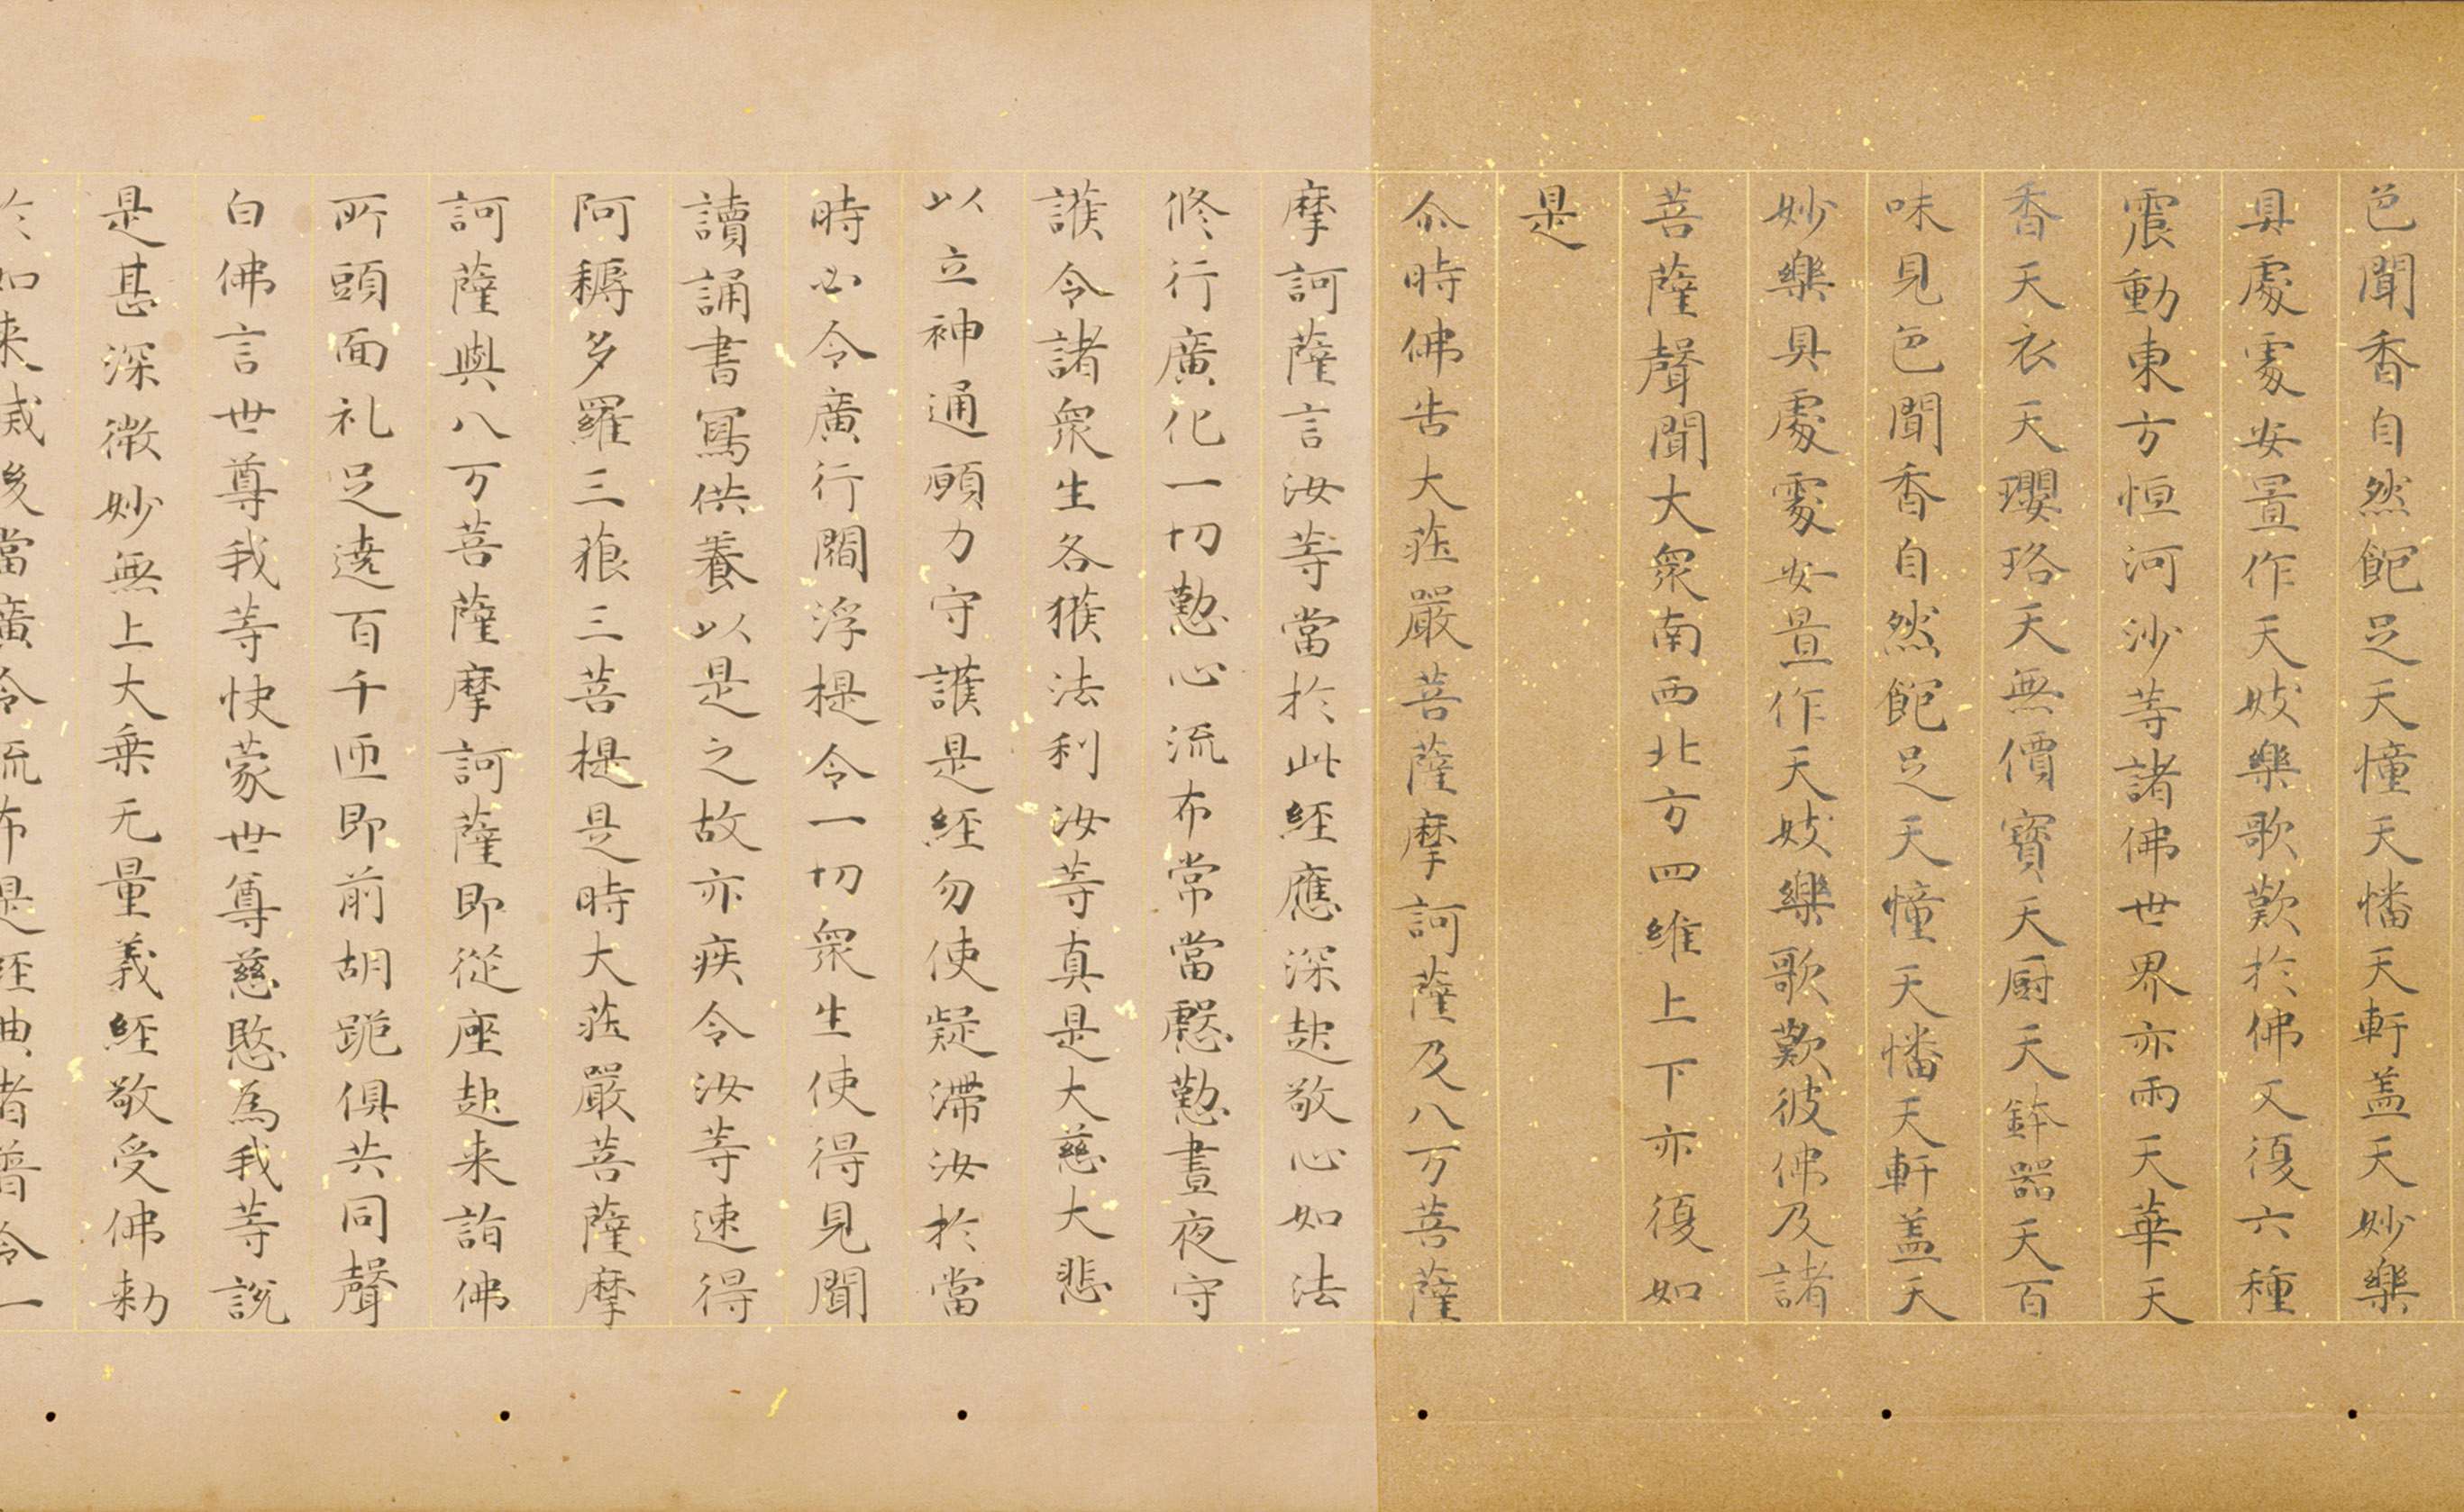 色聞香自然飽足天幢天幡天軒盖天妙樂
具處處安置作天妓樂歌歎於佛又復六種
震動東方恒河沙等諸佛世界亦雨天華天
香天衣天瓔珞天無價寶天厨天鉢器天百
味見色聞香自然飽足天幢天幡天軒盖天
妙樂具處處安置作天妓樂歌歎彼佛及諸
菩薩聲聞大衆南西北方四維上下亦復如
是
尒時佛告大莊嚴菩薩摩訶薩及八万菩薩
摩訶薩言汝等當於此經應深起敬心如法
修行廣化一切懃心流布常當慇懃晝夜守
護令諸衆生各獲法利汝等真是大慈大悲
以立神通願力守護是經勿使疑滯汝於當
時必令廣行閻浮提令一切衆生使得見聞
讀誦書寫供養以是之故亦疾令汝等速得
阿耨多羅三藐三菩提是時大莊嚴菩薩摩
訶薩與八万菩薩摩訶薩即從座起来詣佛
所頭面礼足遶百千匝即前胡跪俱共同聲
白佛言世尊我等快蒙世尊慈愍為我等説
是甚深微妙無上大乗无量義經敬受佛勅
於如来滅後當廣令流布是經典者普令一